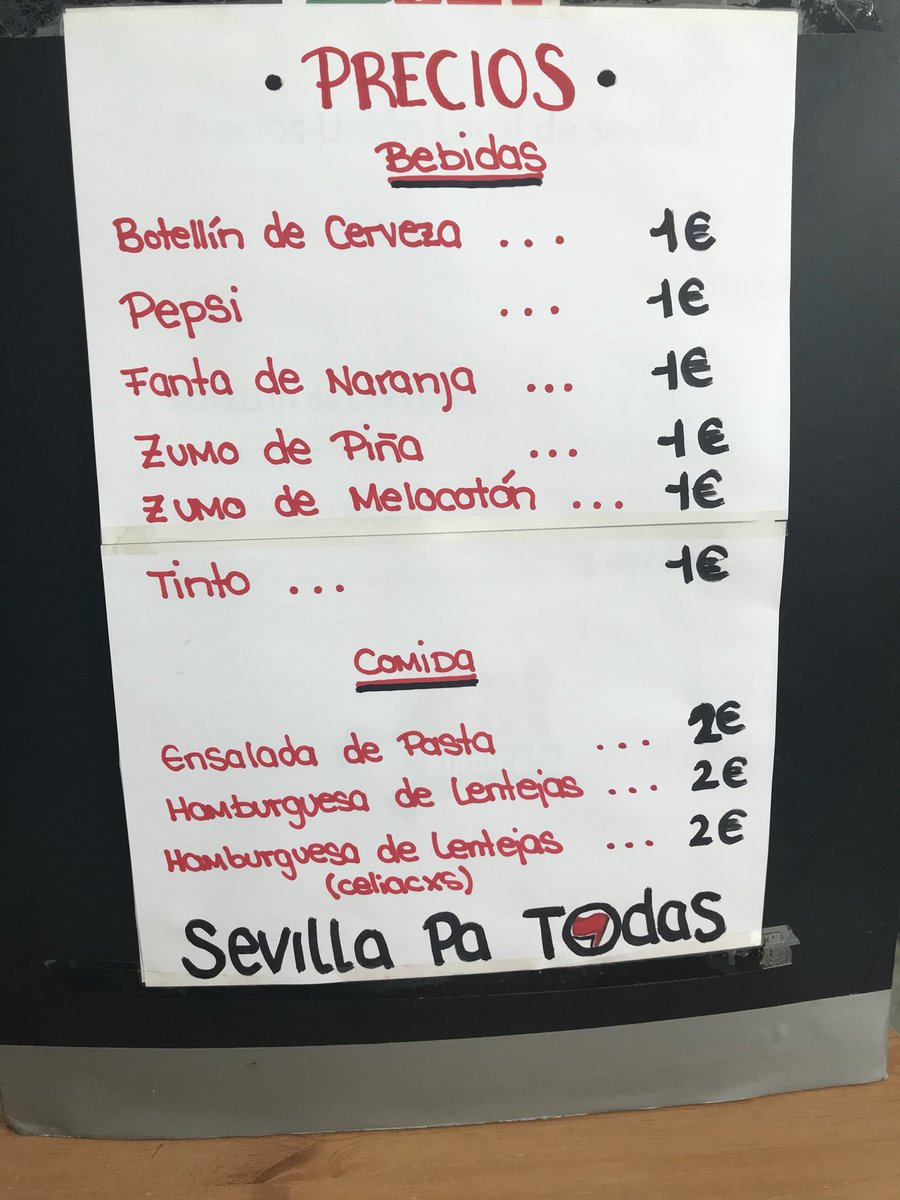 • PRECIOS •
Bebidas
Botellín de Cerveza ... 1€
Pepsi ... 1€
Fanta de Naranja ... 1€
Zumo de Piña ... 1€
Zumo de Melocotón ... 1€
Tinto ... 1€
Comida
Ensalada de Pasta ... 2€
Hamburguesa de Lentejas ... 2€
Hamburguesa de Lentejas ... 2€
(celiacxs)
Sevilla Pa Todas